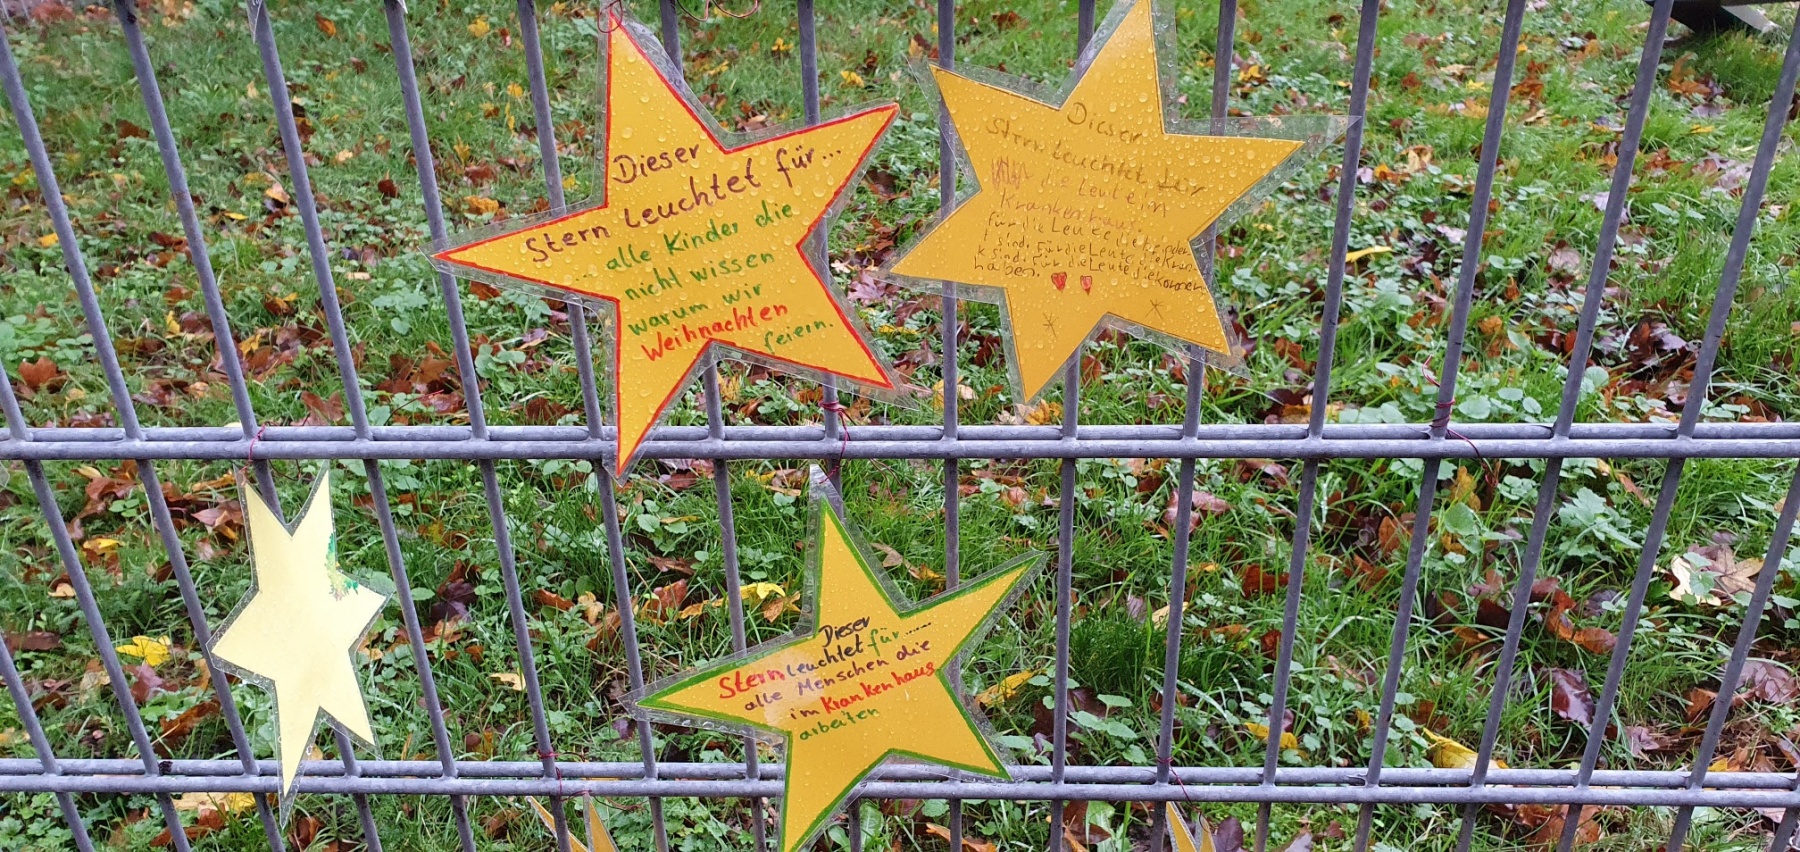 Dieser
Stern leuchtet für...
... alle Kinder die
nicht wissen
warum wir
Weihnachten
feiern.
Dieser
Stern leuchtet für
die Leute in
Krankenhaus.
für die Leute die
sind. Für die Leute die
sind. Für die Leute die
haben.
Dieser
Stern leuchtet für......
alle Menschen die
im Krankenhaus
arbeiten